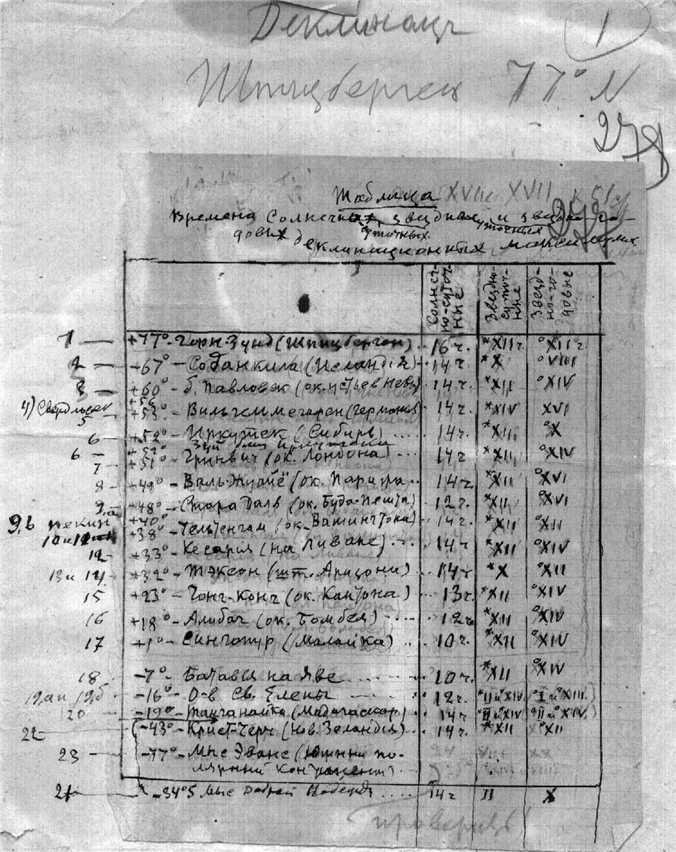 Деклинация
1
Шпицберген 77° N
278
Таблица XVII
Времена Солнечных, звездных и звездно-го-
суточных суточных
довых деклинационных максимумов
Солнеч-
но-суточ-
ные
Звездно-
суточ-
ные
Звезд-
но-го-
довые
1 — +77° - Горн-Зунд (Шпицберген) 16 ч. *XII ч. °XII ч
2 — +67° - Соданкила (Исландия) 14 ч. *X °VIII
3 — +60° - б. Павловск (ок. устьев Невы) 14 ч. *XII °XIV
4) Свердловск +56
5 +53° - Вильгельмсгафен (Германия) 14 ч. *XIV XVI
6 — +52° - Иркутск (Сибирь) 14 ч. *XII °X
6 — +52° - Зуй близ Иркутска
7 +51° - Гринвич (ок. Лондона) 14 ч *XII °XIV
8 — +49° - Валь-Жуайё (ок. Парижа) 14 ч. *XII °XVI
9а — +48° - Стара Даля (ок. Буда-Пешта) 12 ч. *XII °XVI
9,б Пекин +40°
+38° - Чельтенгам (ок. Вашингтона) 14 ч. *XII °XII
12 — +33° - Кесария (на Ливане) 14 ч *XII °XIV
13 и 14 — +32° - Тэксон (шт. Аризона) 14 ч *X °XII
15 +23° - Гонг-Конг (ок. Кантона) 13 ч. *XII °XIV
16 +18° - Алибаг (ок. Бомбея) 12 ч *XII °XIV
17 +1° - Сингапур (Малайка) 10 ч. *XII °XIV
18 -7° - Батавия на Яве 10 ч. *XII °XIV
19а и 19б -16° - О-в Св. Елены 12 ч. *II и *XIV °I и °XIII
20 -19° - Тананайка (Мадагаскар) 14 ч *II и XIV °II и °XIV
22 — -43° - Крист-Черч (Нов. Зеландия) 14 ч *XII °XII
23 — -77° - Мыс Эванс (Южный по-
лярный континент)
21 -34°5 Мыс Доброй Надежды 14 ч II X
проверить!